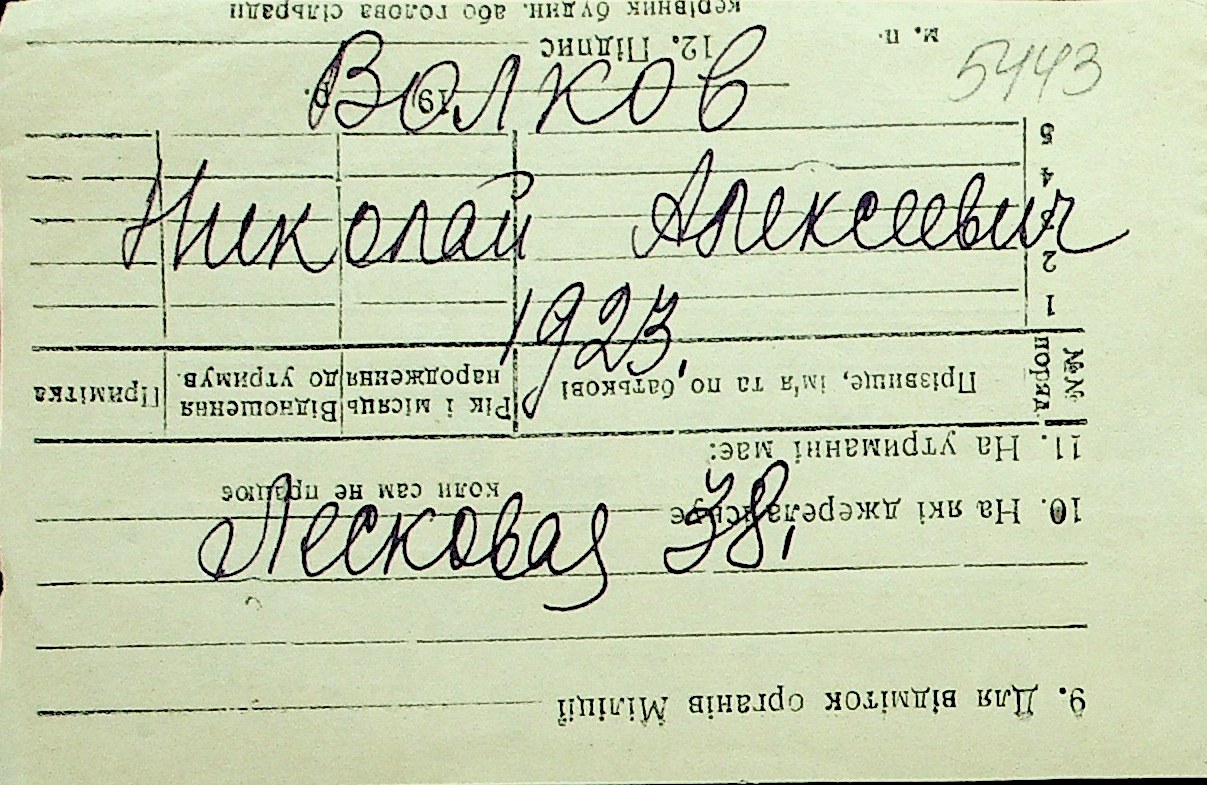 5443
Волков
Николай Алексеевич
1923.
Лесковая 38,
9. Для відміток органів Міліції
10. На які джерела існує
коли сам не працює
11. На утриманні має:
№№ поряд. Прізвище, ім'я та по батькові Рік і місяць народження Відношення до утримув. Примітка
1
2
3
4
5
19 р.
м. п. 12. Підпис
керівник будин. або голова сільради